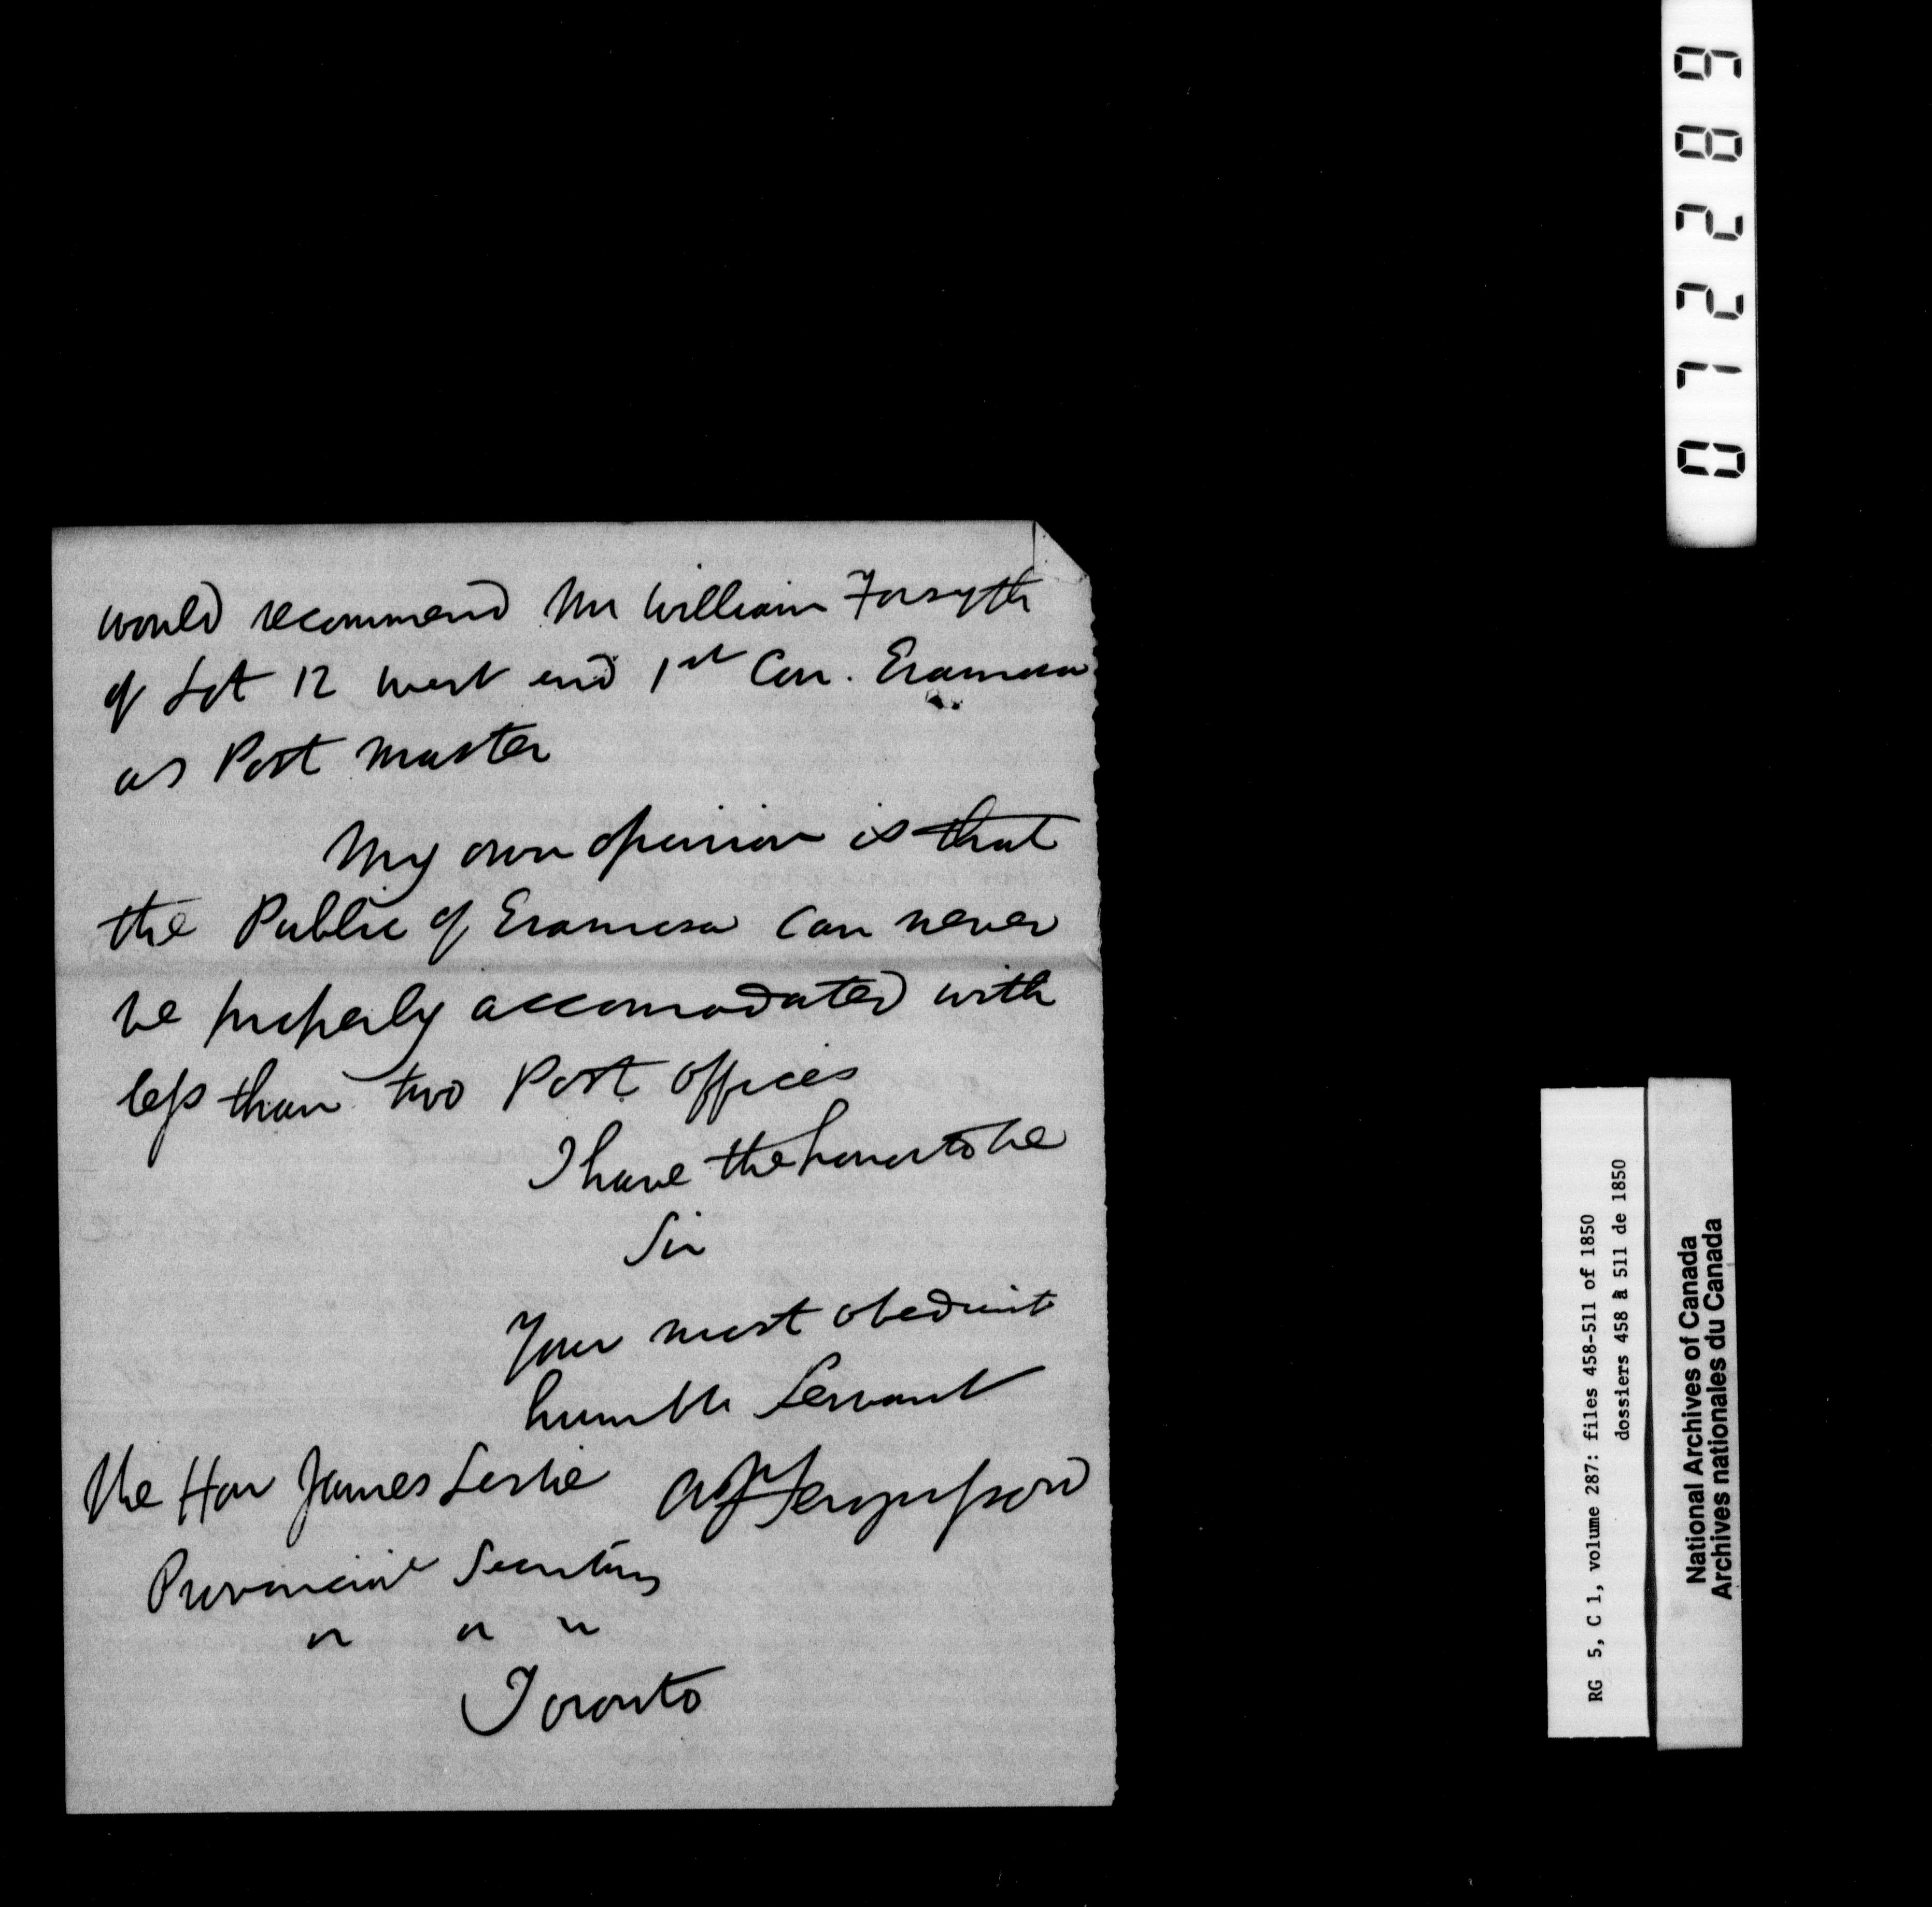 would recommend Mr William Forsyth
of Lot 12 west end 1st Con. Eramosa
as Post Master
My own opinion is that
the Public of Eramosa can never
be properly accomodated with
less than two Post offices
I have the honor to be
Sir
Your most obedient
humble Servant
The Hon James Leslie AJFergusson
Provincial Secretary
" " "
Toronto
017228 9
RG 5, C 1, volume 287: files 458-511 of 1850
dossiers 458 à 511 de 1850
National Archives of Canada
Archives nationales du Canada